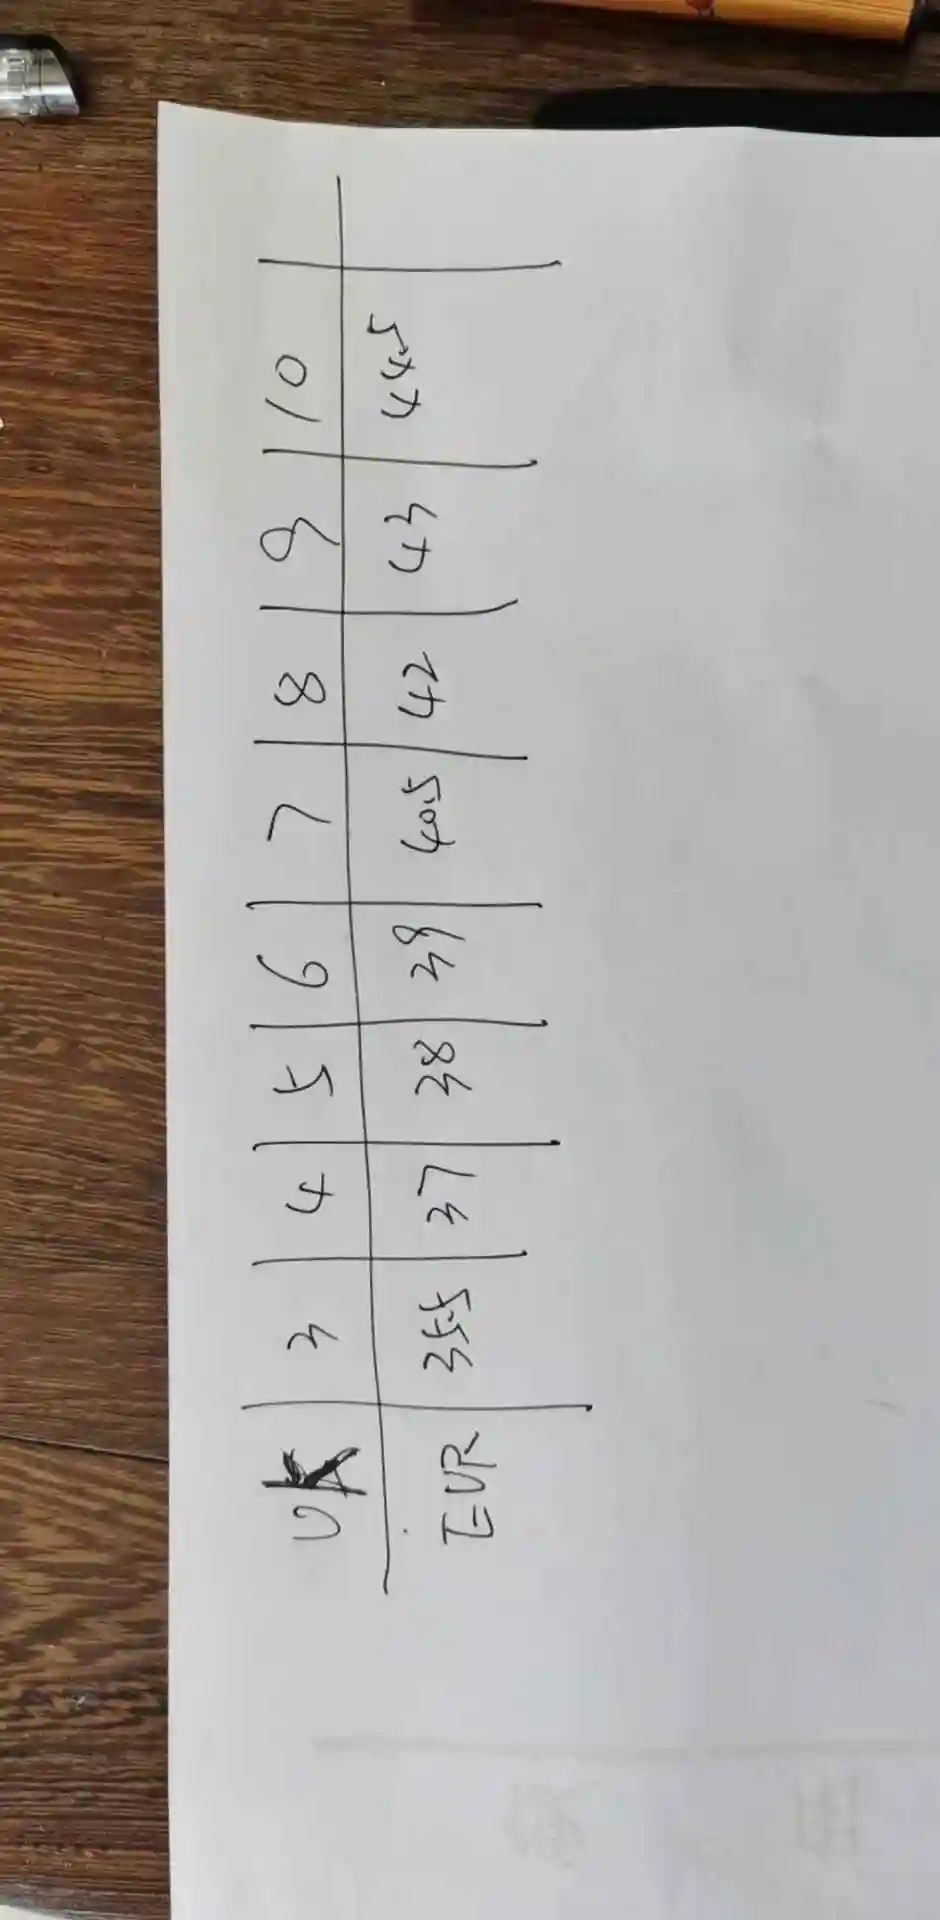 UK 3 4 5 6 7 8 9 10
EUR 35.5 37 38 39 40.5 42 43 44.5